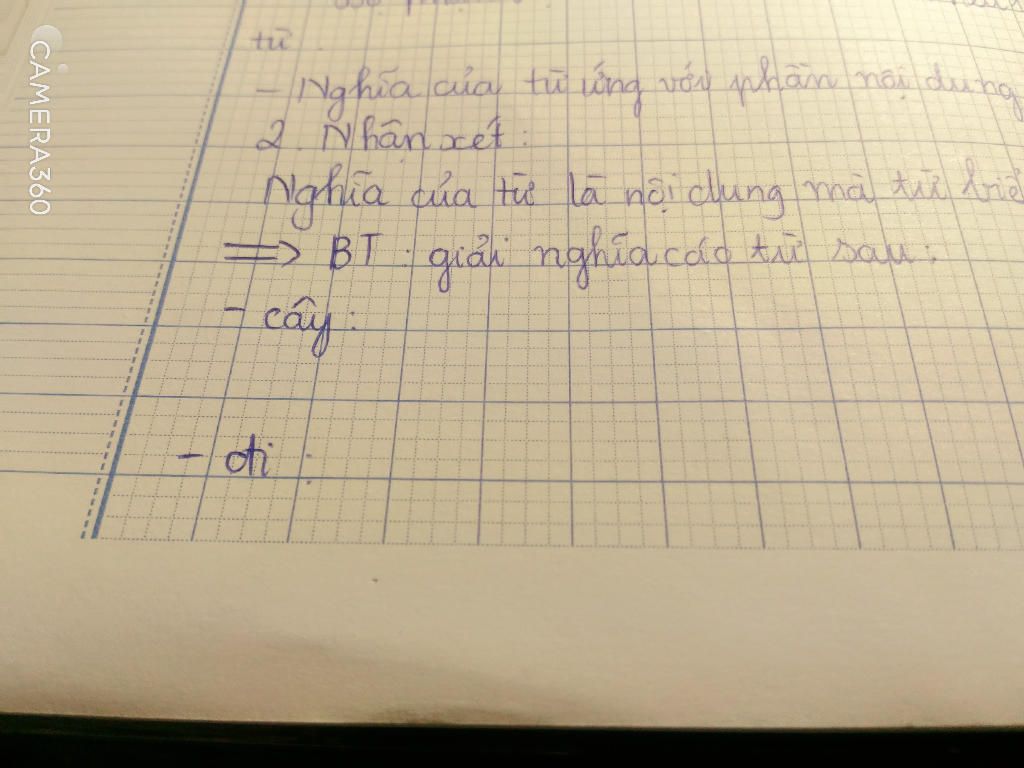 từ
- Nghĩa của từ ứng với phần nội dung
2. Nhận xét:
Nghĩa của từ là nội dung mà từ
=> BT: giải nghĩa các từ sau:
- cây:
- đi:
CAMERA360